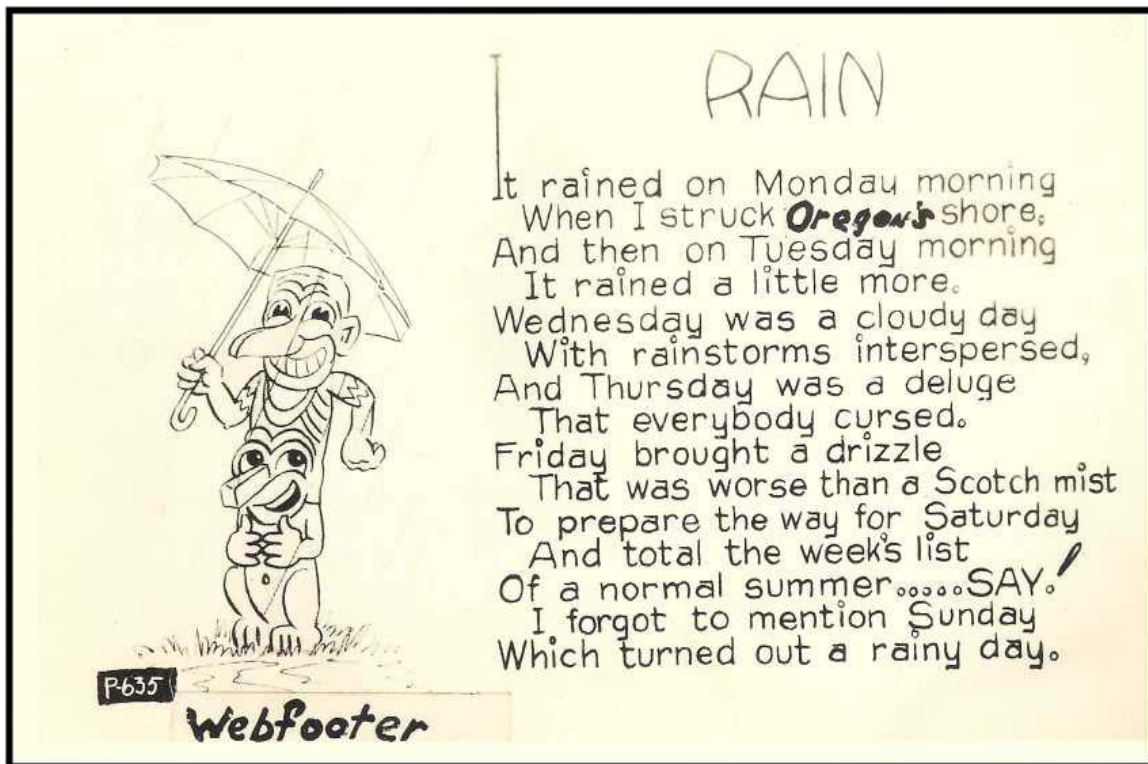 RAIN
It rained on Monday morning
When I struck Oregon's shore.
And then on Tuesday morning
It rained a little more.
Wednesday was a cloudy day
With rainstorms interspersed,
And Thursday was a deluge
That everybody cursed.
Friday brought a drizzle
That was worse than a Scotch mist
To prepare the way for Saturday
And total the week's list
Of a normal summer.....SAY!
I forgot to mention Sunday
Which turned out a rainy day.
P-635
Webfooter